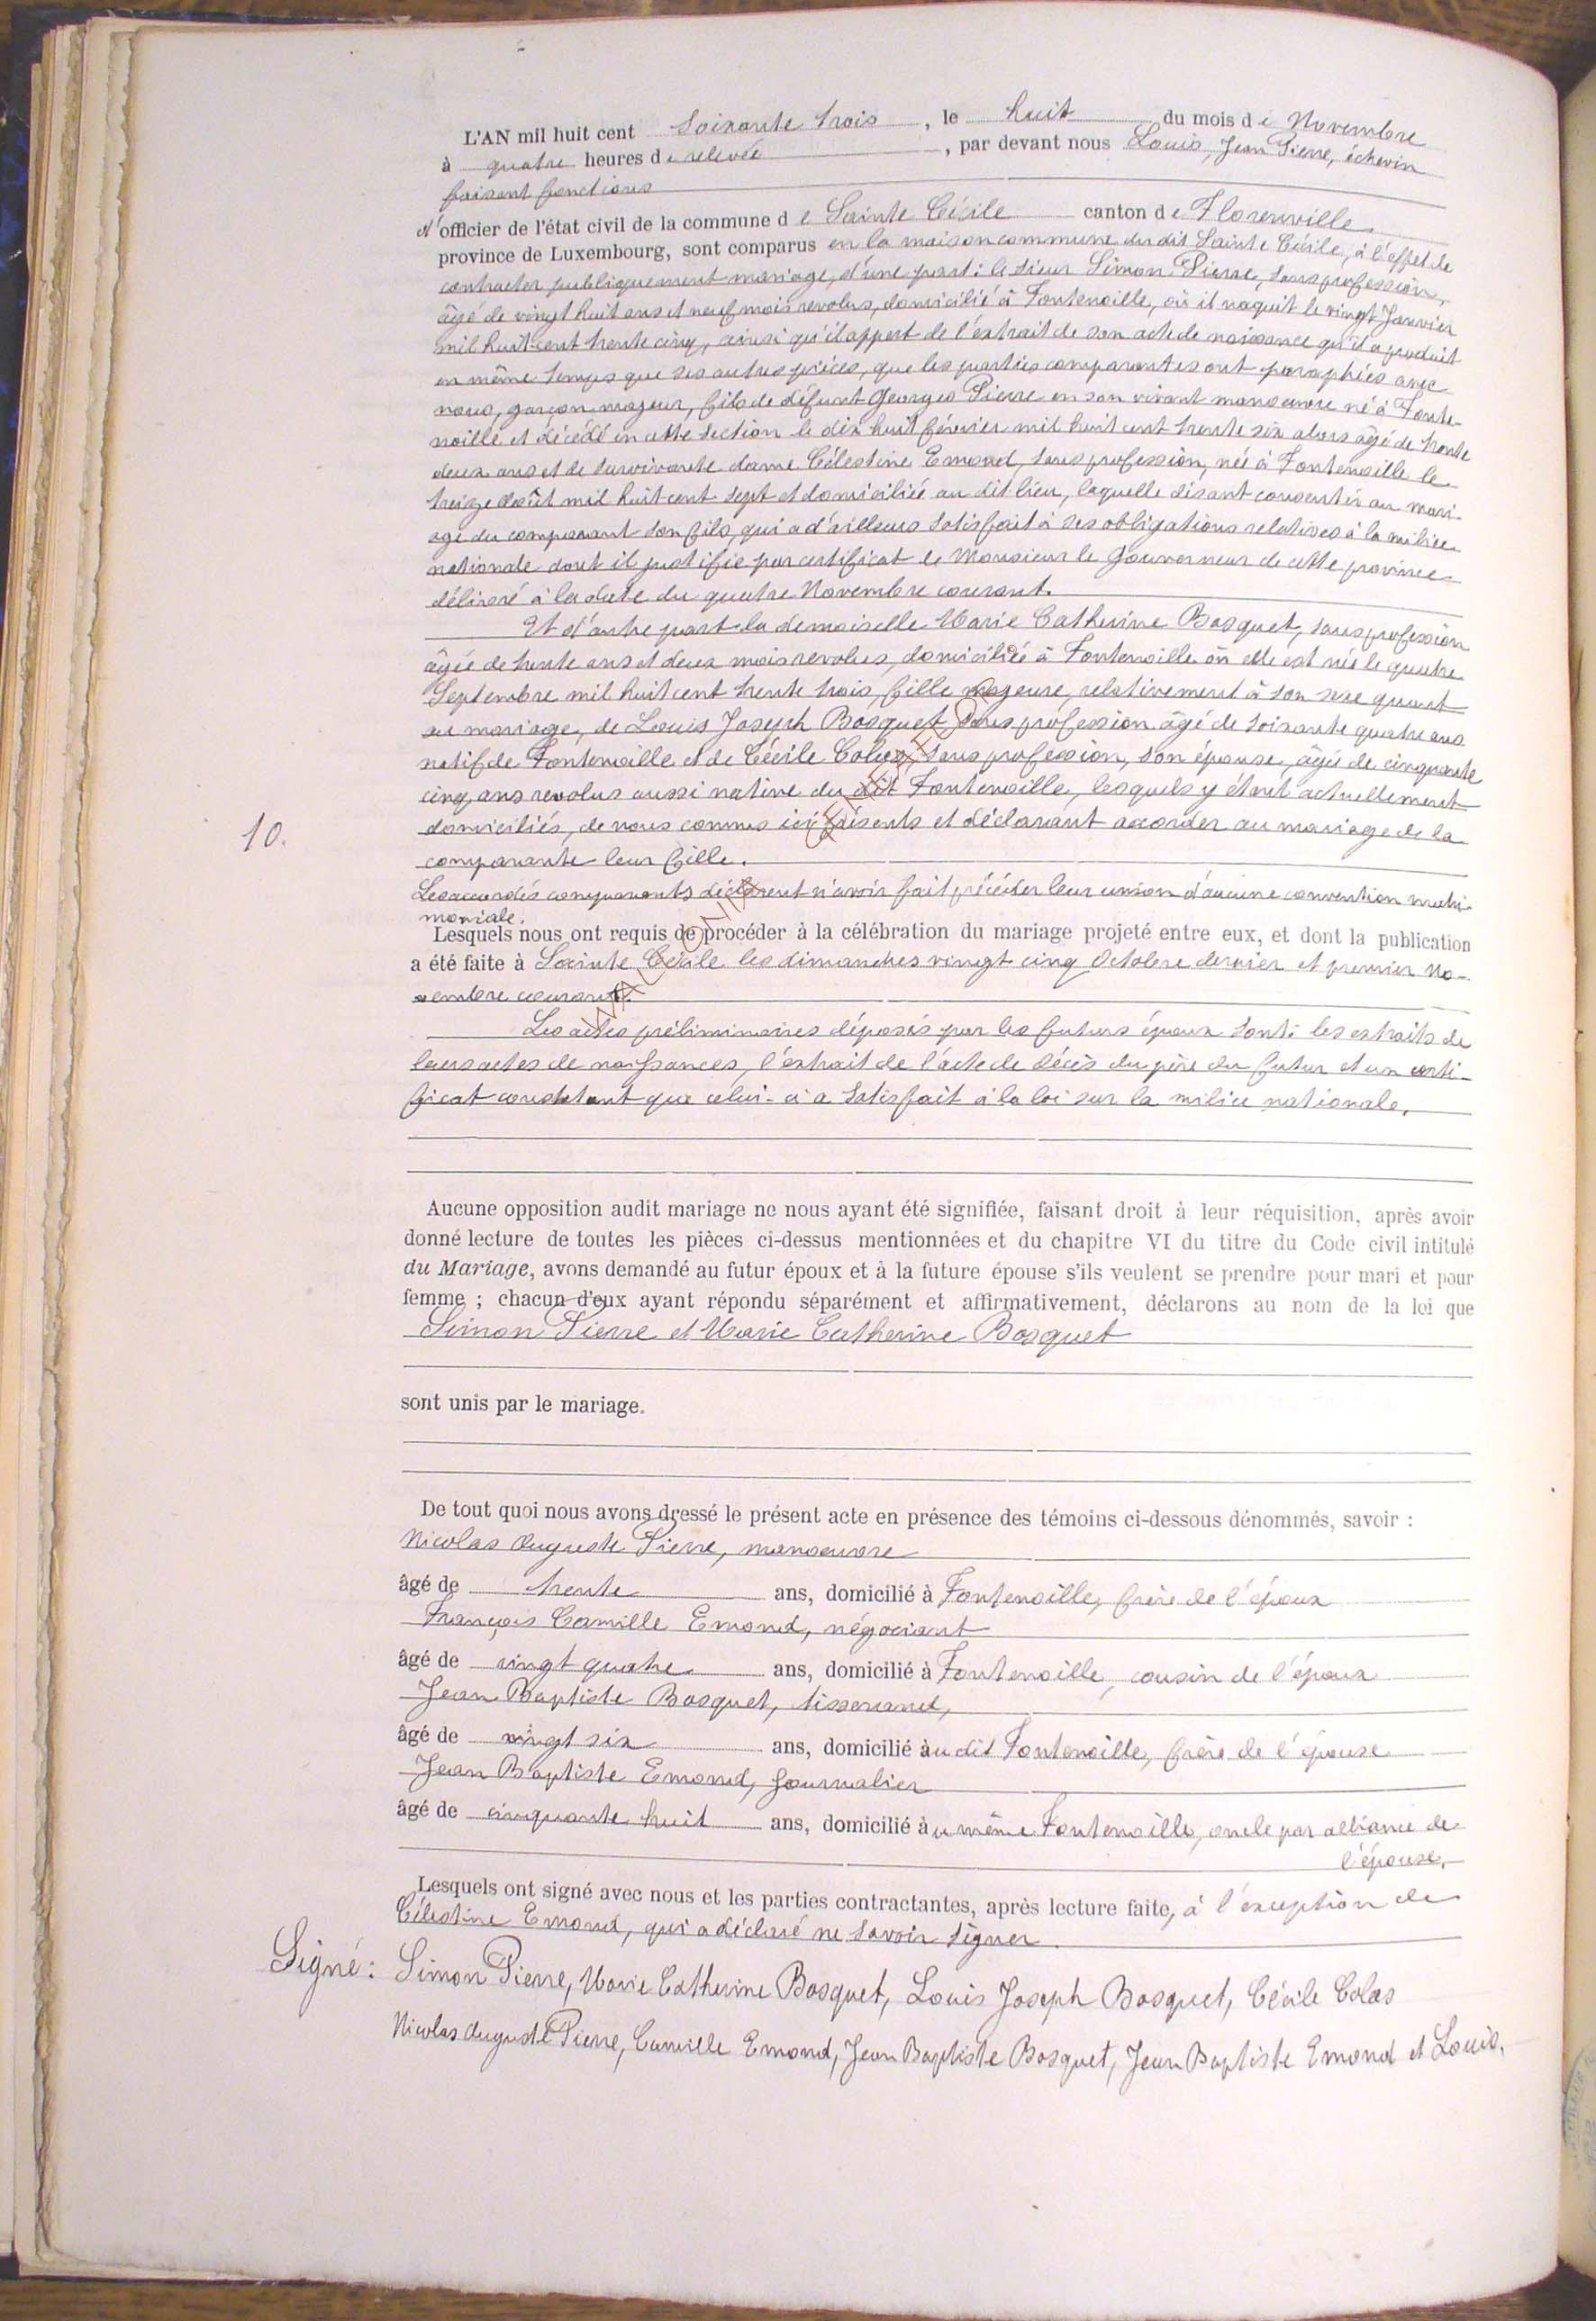 L'AN mil huit cent soixante trois, le huit du mois de Novembre
à quatre heures de relevée, par devant nous Louis, Jean Pierre, échevin
faisant fonctions
d'officier de l'état civil de la commune de Sainte Cécile canton de Florenville
province de Luxembourg, sont comparus en la maison commune du dit Sainte Cécile, à l'effet de
contracter publiquement mariage, d'une part : le sieur Simon Pierre, sans profession,
âgé de vingt huit ans et neuf mois revolus, domicilié à Fontenoille, où il naquit le vingt Janvier
mil huit-cent trente cinq, ainsi qu'il appert de l'extrait de son acte de naissance qu'il a produit
en même temps que ses autres pièces, que les parties comparantes ont paraphées avec
nous, garçon majeur, fils de défunt Georges Pierre en son vivant manoeuvre né à Fonte-
noille et décédé en cette section le dix huit février mil huit cent trente six alors âgé de trente
deux ans et de survivante dame Célestine Emond, sans profession, née à Fontenoille le
treize Août mil huit cent sept et domiciliée au dit lieu, laquelle disant consentir au mari-
age du comparant son fils, qui a d'ailleurs satisfait à ses obligations relatives à la milice
nationale dont il justifie par certificat de Monsieur le Gouverneur de cette province
délivré à la date du quatre Novembre courant.
Et d'autre part la demoiselle Marie Catherine Bosquet, sans profession
âgée de trente ans et deux mois revolus, domiciliée à Fontenoille où elle est née le quatre
Septembre mil huit cent trente trois, fille majeure, relativement à son sexe quant
au mariage, de Louis Joseph Bosquet sans profession âgé de soixante quatre ans
natif de Fontenoille et de Cécile Colas, sans profession, son épouse, âgée de cinquante
cinq ans revolus aussi native du dit Fontenoille, lesquels y étant actuellement
domiciliés, de nous connus ici présents et déclarant accorder au mariage de la
10.
comparante leur fille.
Les accordés comparants déclarent n'avoir fait précéder leur union d'aucune convention matri-
moniale.
Lesquels nous ont requis de procéder à la célébration du mariage projeté entre eux, et dont la publication
a été faite à Sainte Cécile les dimanches vingt cinq Octobre dernier et premier No-
vembre courant.
Les actes préliminaires déposés par les futurs époux sont : les extraits de
leurs actes de naissances, l'extrait de l'acte de décès du père du futur et un certi-
ficat constatant que celui-ci a satisfait à la loi sur la milice nationale.
Aucune opposition audit mariage ne nous ayant été signifiée, faisant droit à leur réquisition, après avoir
donné lecture de toutes les pièces ci-dessus mentionnées et du chapitre VI du titre du Code civil intitulé
du Mariage, avons demandé au futur époux et à la future épouse s'ils veulent se prendre pour mari et pour
femme ; chacun d'eux ayant répondu séparément et affirmativement, déclarons au nom de la loi que
Simon Pierre et Marie Catherine Bosquet
sont unis par le mariage.
De tout quoi nous avons dressé le présent acte en présence des témoins ci-dessous dénommés, savoir :
Nicolas Auguste Pierre, manoeuvre
âgé de trente ans, domicilié à Fontenoille, frère de l'époux
François Camille Emond, négociant
âgé de vingt quatre ans, domicilié à Fontenoille, cousin de l'époux
Jean Baptiste Bosquet, tisserand,
âgé de vingt six ans, domicilié àu dit Fontenoille, frère de l'épouse
Jean Baptiste Emond, Journalier
âgé de cinquante huit ans, domicilié àu même Fontenoille, oncle par alliance de
l'épouse.
Lesquels ont signé avec nous et les parties contractantes, après lecture faite, à l'exception de
Célestine Emond, qui a déclaré ne savoir signer.
Signé : Simon Pierre, Marie Catherine Bosquet, Louis Joseph Bosquet, Cécile Colas
Nicolas Auguste Pierre, Camille Emond, Jean Baptiste Bosquet, Jean Baptiste Emond et Louis.